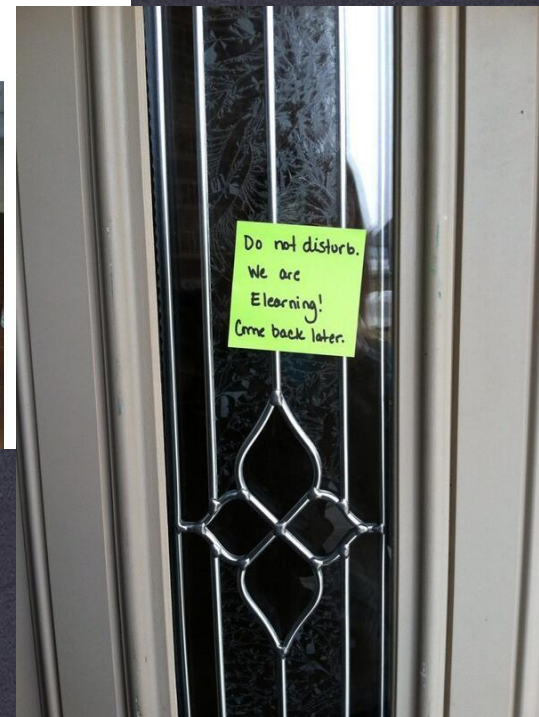 Do not disturb.
We are
Elearning!
Come back later.